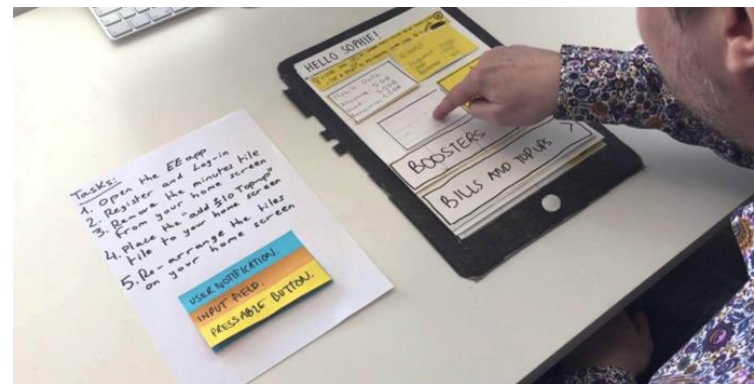 Tasks:
1. Open the EE app
2. Register and Log-in
3. Remove the minutes tile
from your home screen
4. Place the "add £10 Top-up"
tile to your home screen
5. Re-arrange the tiles
on your home screen
USER NOTIFICATION.
INPUT FIELD.
PRESSABLE BUTTON.
HELLO SOPHIE!
BOOSTERS
BILLS AND TOPUPS >